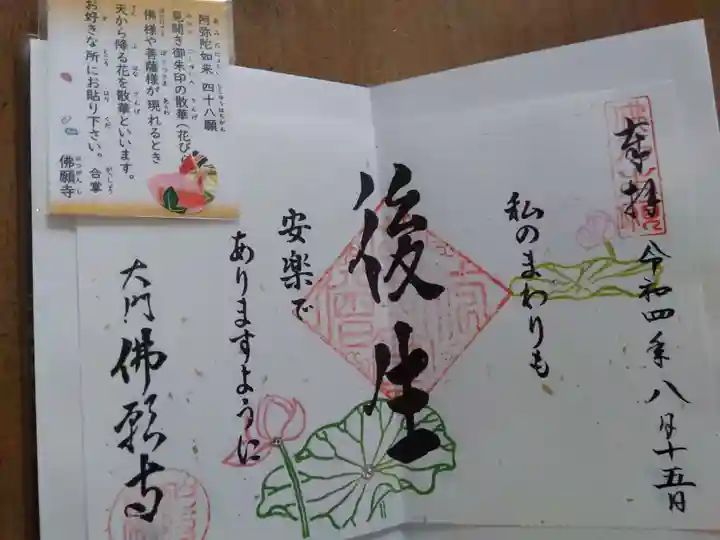 奉拝
令和四年八月十五日
私のまわりも
後生
安楽で
ありますように
大門 佛願寺
阿弥陀如来 四十八願
見開き御朱印の散華(花び
佛様や菩薩様が現れるとき
天から降る花を散華といいます。
お好きな所にお貼り下さい。 合掌
佛願寺